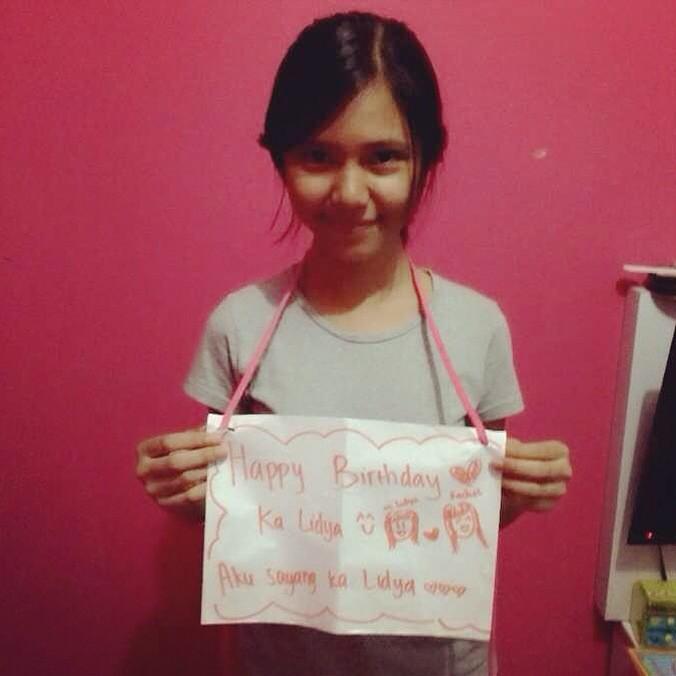 Happy Birthday
Ka Lidya ^^
Rachel
Aku sayang ka Lidya